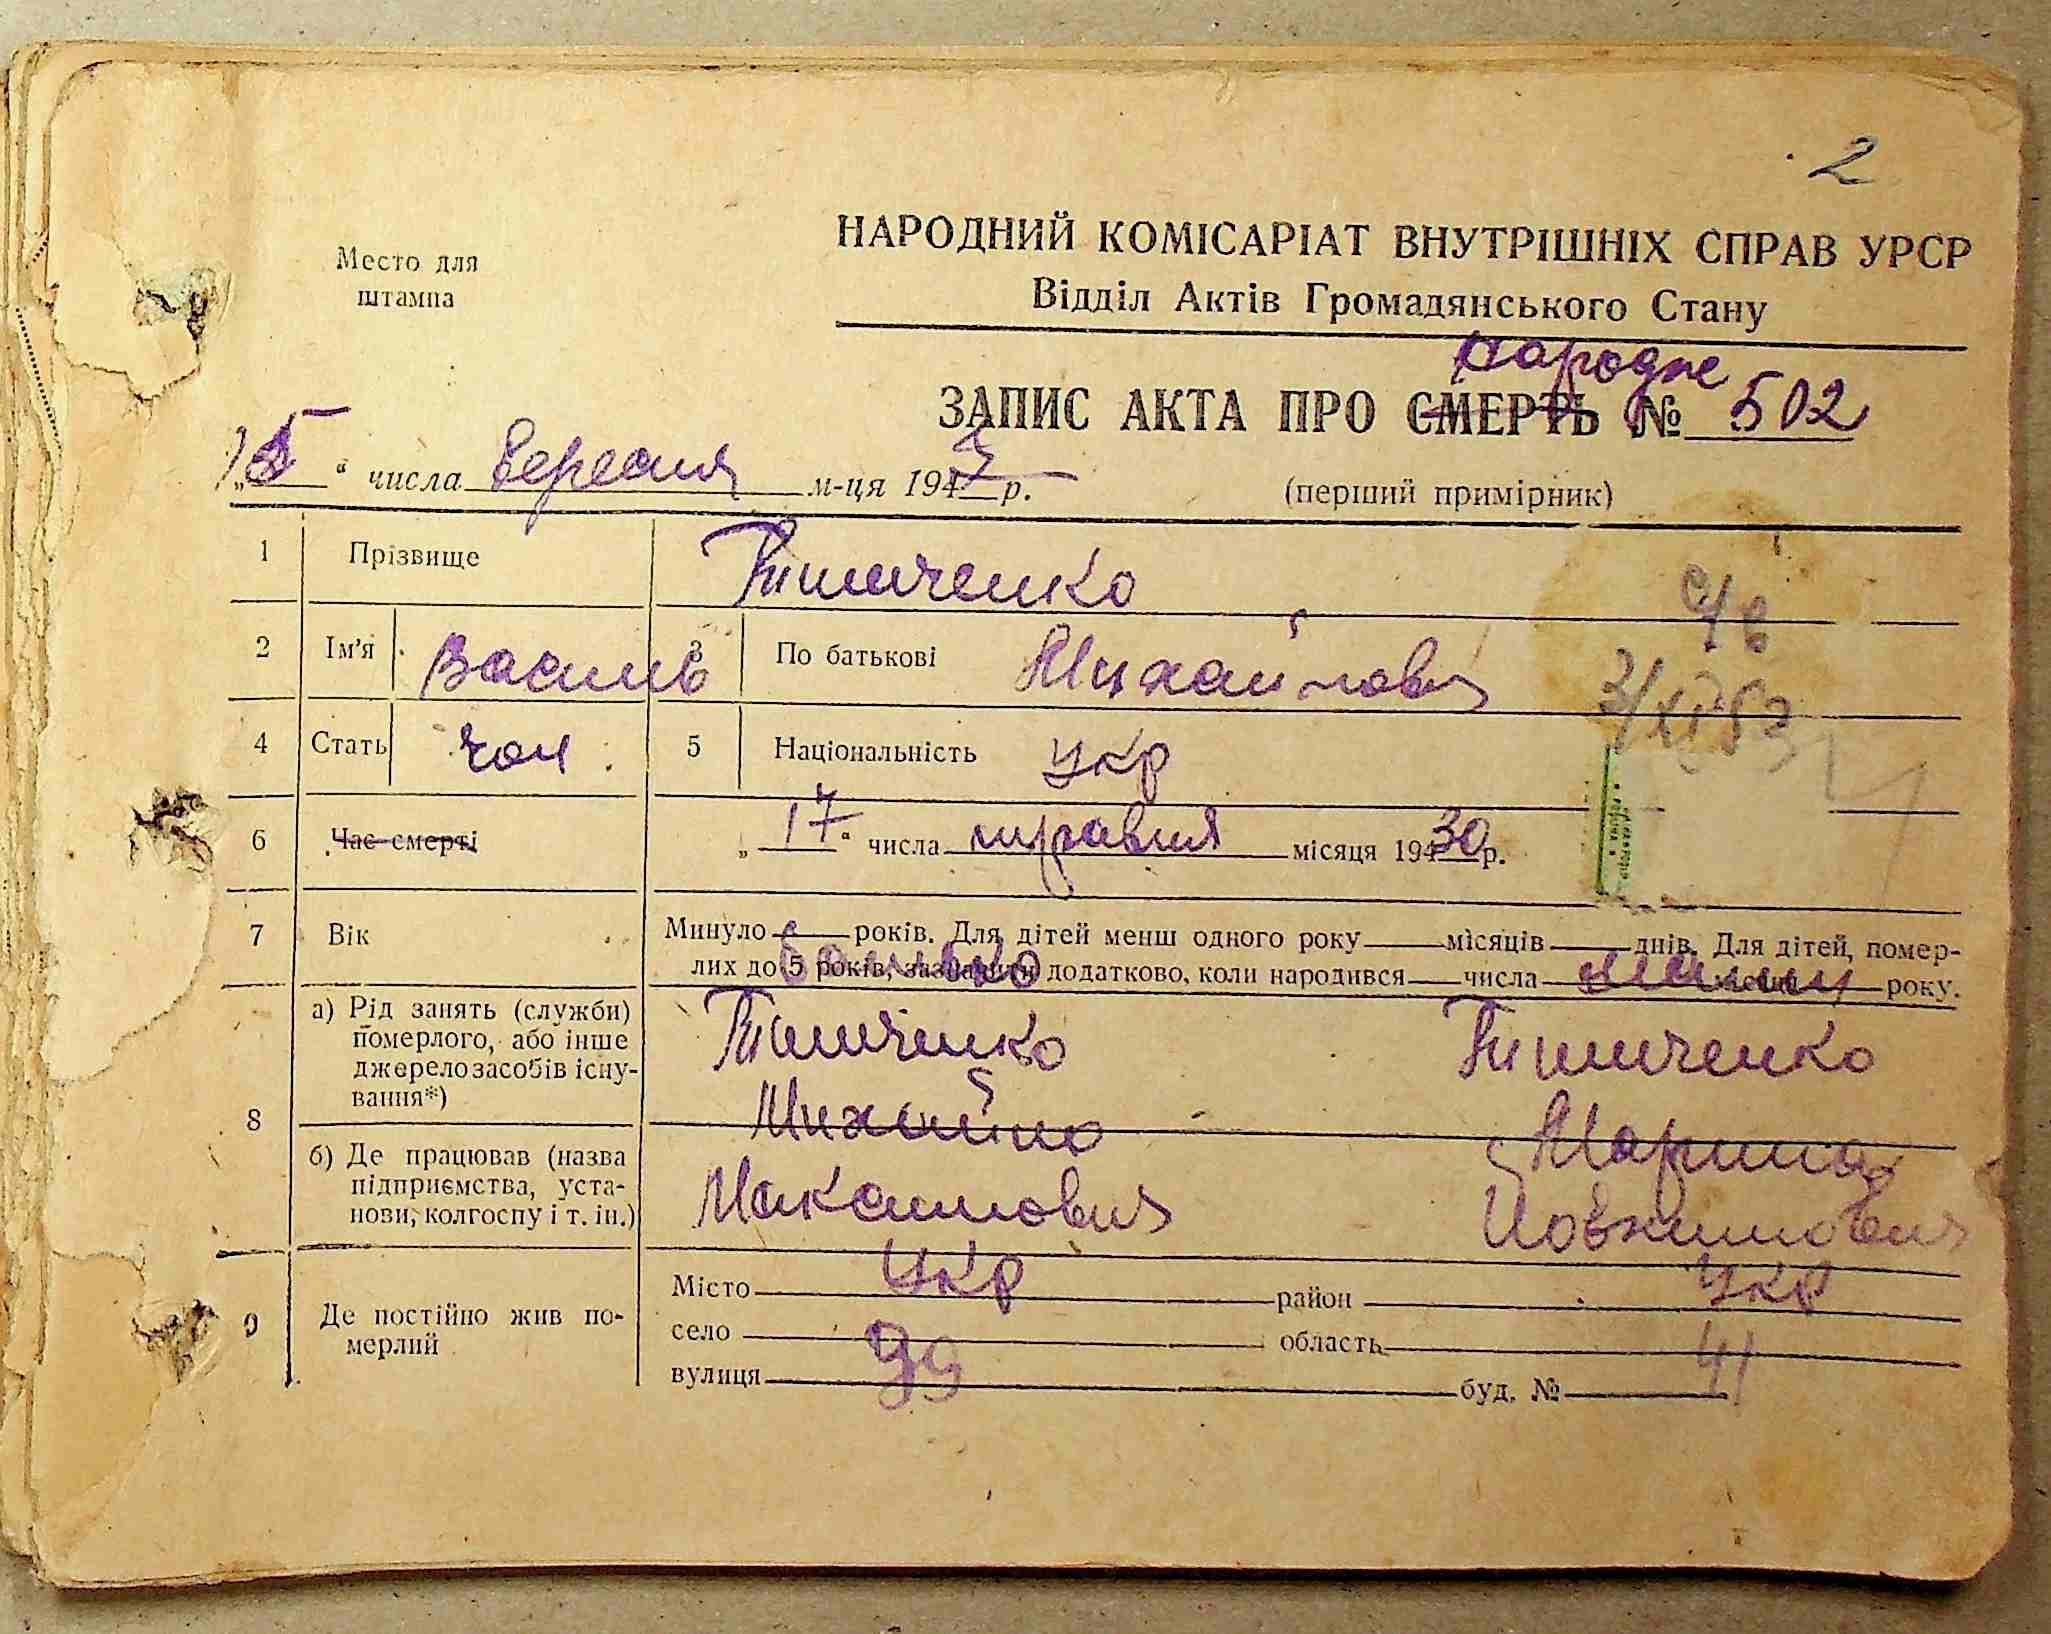 2
Место для
штампа
НАРОДНИЙ КОМІСАРІАТ ВНУТРІШНІХ СПРАВ УРСР
Відділ Актів Громадянського Стану
народже
ЗАПИС АКТА ПРО СМЕРТЬ № 502
„15“ числа вересня м-ця 194 р.
(перший примірник)
1 Прізвище Тимченко
2 Ім'я Василь 3 По батькові Михайлович
4 Стать чол 5 Національність укр
6 Час смерті „17“ числа травня місяця 194 30 р.
7 Вік Минуло років. Для дітей менш одного року місяців днів. Для дітей, помер-
лих до 5 років, зазначити додатково, коли народився числа року.
батько
8 а) Рід занять (служби)
померлого, або інше
джерело засобів існу-
вання*)
Тимченко Тимченко
Михайло Марина
б) Де працював (назва
підприємства, уста-
нови, колгоспу і т. ін.)
Максимович
9 Де постійно жив по-
мерлий
Місто укр район укр
село область
вулиця 39 буд. № 41